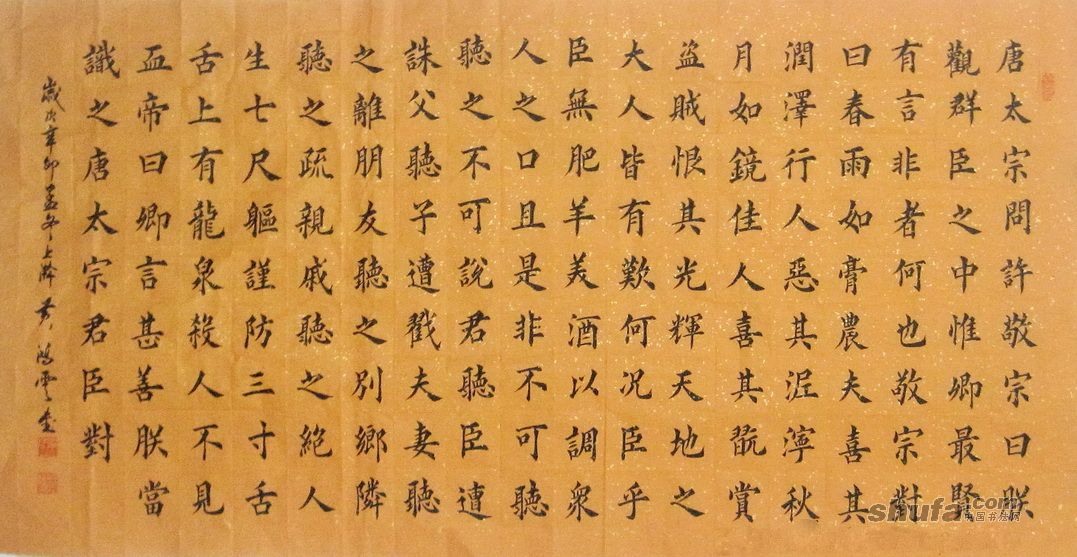 唐太宗問許敬宗曰朕
觀群臣之中惟卿最賢
有言非者何也敬宗對
曰春雨如膏農夫喜其
潤澤行人惡其泥濘秋
月如鏡佳人喜其翫賞
盜賊恨其光輝天地之
大人皆有歎何況臣乎
臣無肥羊美酒以調衆
人之口且是非不可聽
聽之不可說君聽臣遭
誅父聽子遭戮夫妻聽
之離朋友聽之別鄉隣
聽之疏親戚聽之絕人
生七尺軀謹防三寸舌
舌上有龍泉殺人不見
血帝曰卿言甚善朕當
識之唐太宗君臣對
歲次辛卯孟冬上澣黃鴻雲書
shufa.com
中国书法网